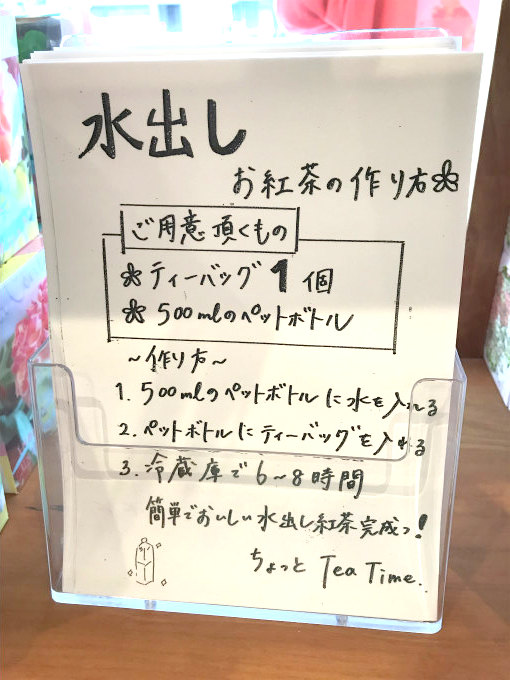 水出し
お紅茶の作り方
ご用意頂くもの
ティーバッグ1個
500mlのペットボトル
~作り方~
1. 500mlのペットボトルに水を入れる
2. ペットボトルにティーバッグを入れる
3. 冷蔵庫で6~8時間
簡単でおいしい水出し紅茶完成っ!
ちょっと Tea Time.